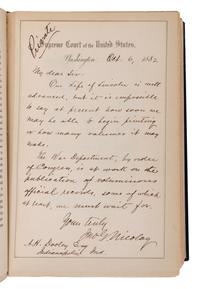 Private
Supreme Court of the United States.
Washington Oct. 6, 1882.
My dear Sir:
Our Life of Lincoln is well
advanced, but it is impossible
to say at present how soon we
may be able to begin printing
or how many volumes it may
make.
The War Department, by order
of Congress, is at work on the
publication of voluminous
official records, some of which
at least, we must wait for.
Yours truly
Jno G Nicolay
A.H. Dooley Esq
Indianapolis Ind.